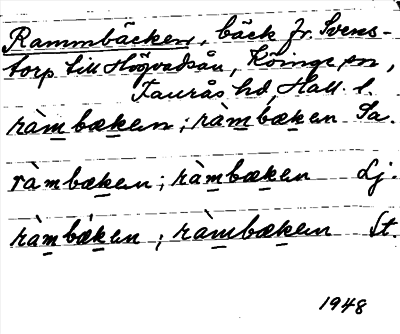 Rammbäcken, bäck fr. Svens-
torp till Högvadsån, Köinge sn,
Faurås hd, Hall. l.
ràmbæken; ràmbæken Sa.
ràmbæken; ràmbæken Lj.
ràmbæ̀ken; ràmbæken St.
1948